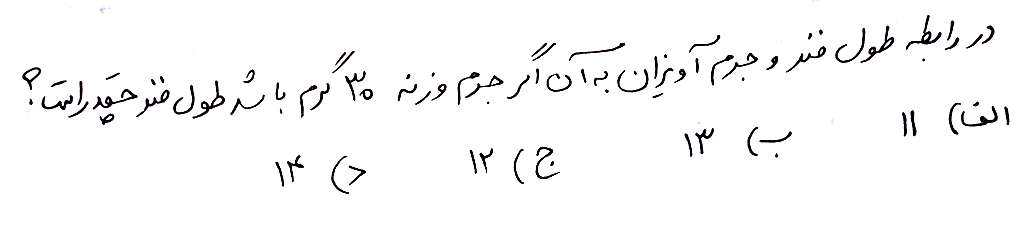 در رابطه طول فنر و جرم آویزان به آن اگر جرم وزنه ۳۰ گرم باشد طول فنر چقدر است؟
الف) ۱۱ ب) ۱۳ ج) ۱۲ د) ۱۴